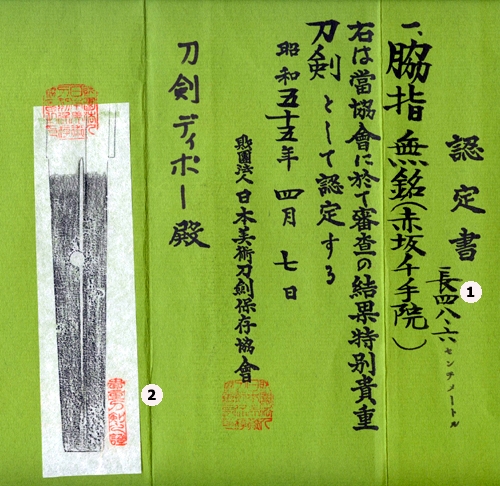 認定書
一、脇指 無銘(赤坂千手院)
長四八・六センチメートル
右は當協會に於て審査の結果特別貴重
刀剣として認定する
昭和五十五年四月七日
財團法人日本美術刀剣保存協會
刀剣ディポー殿
1
2